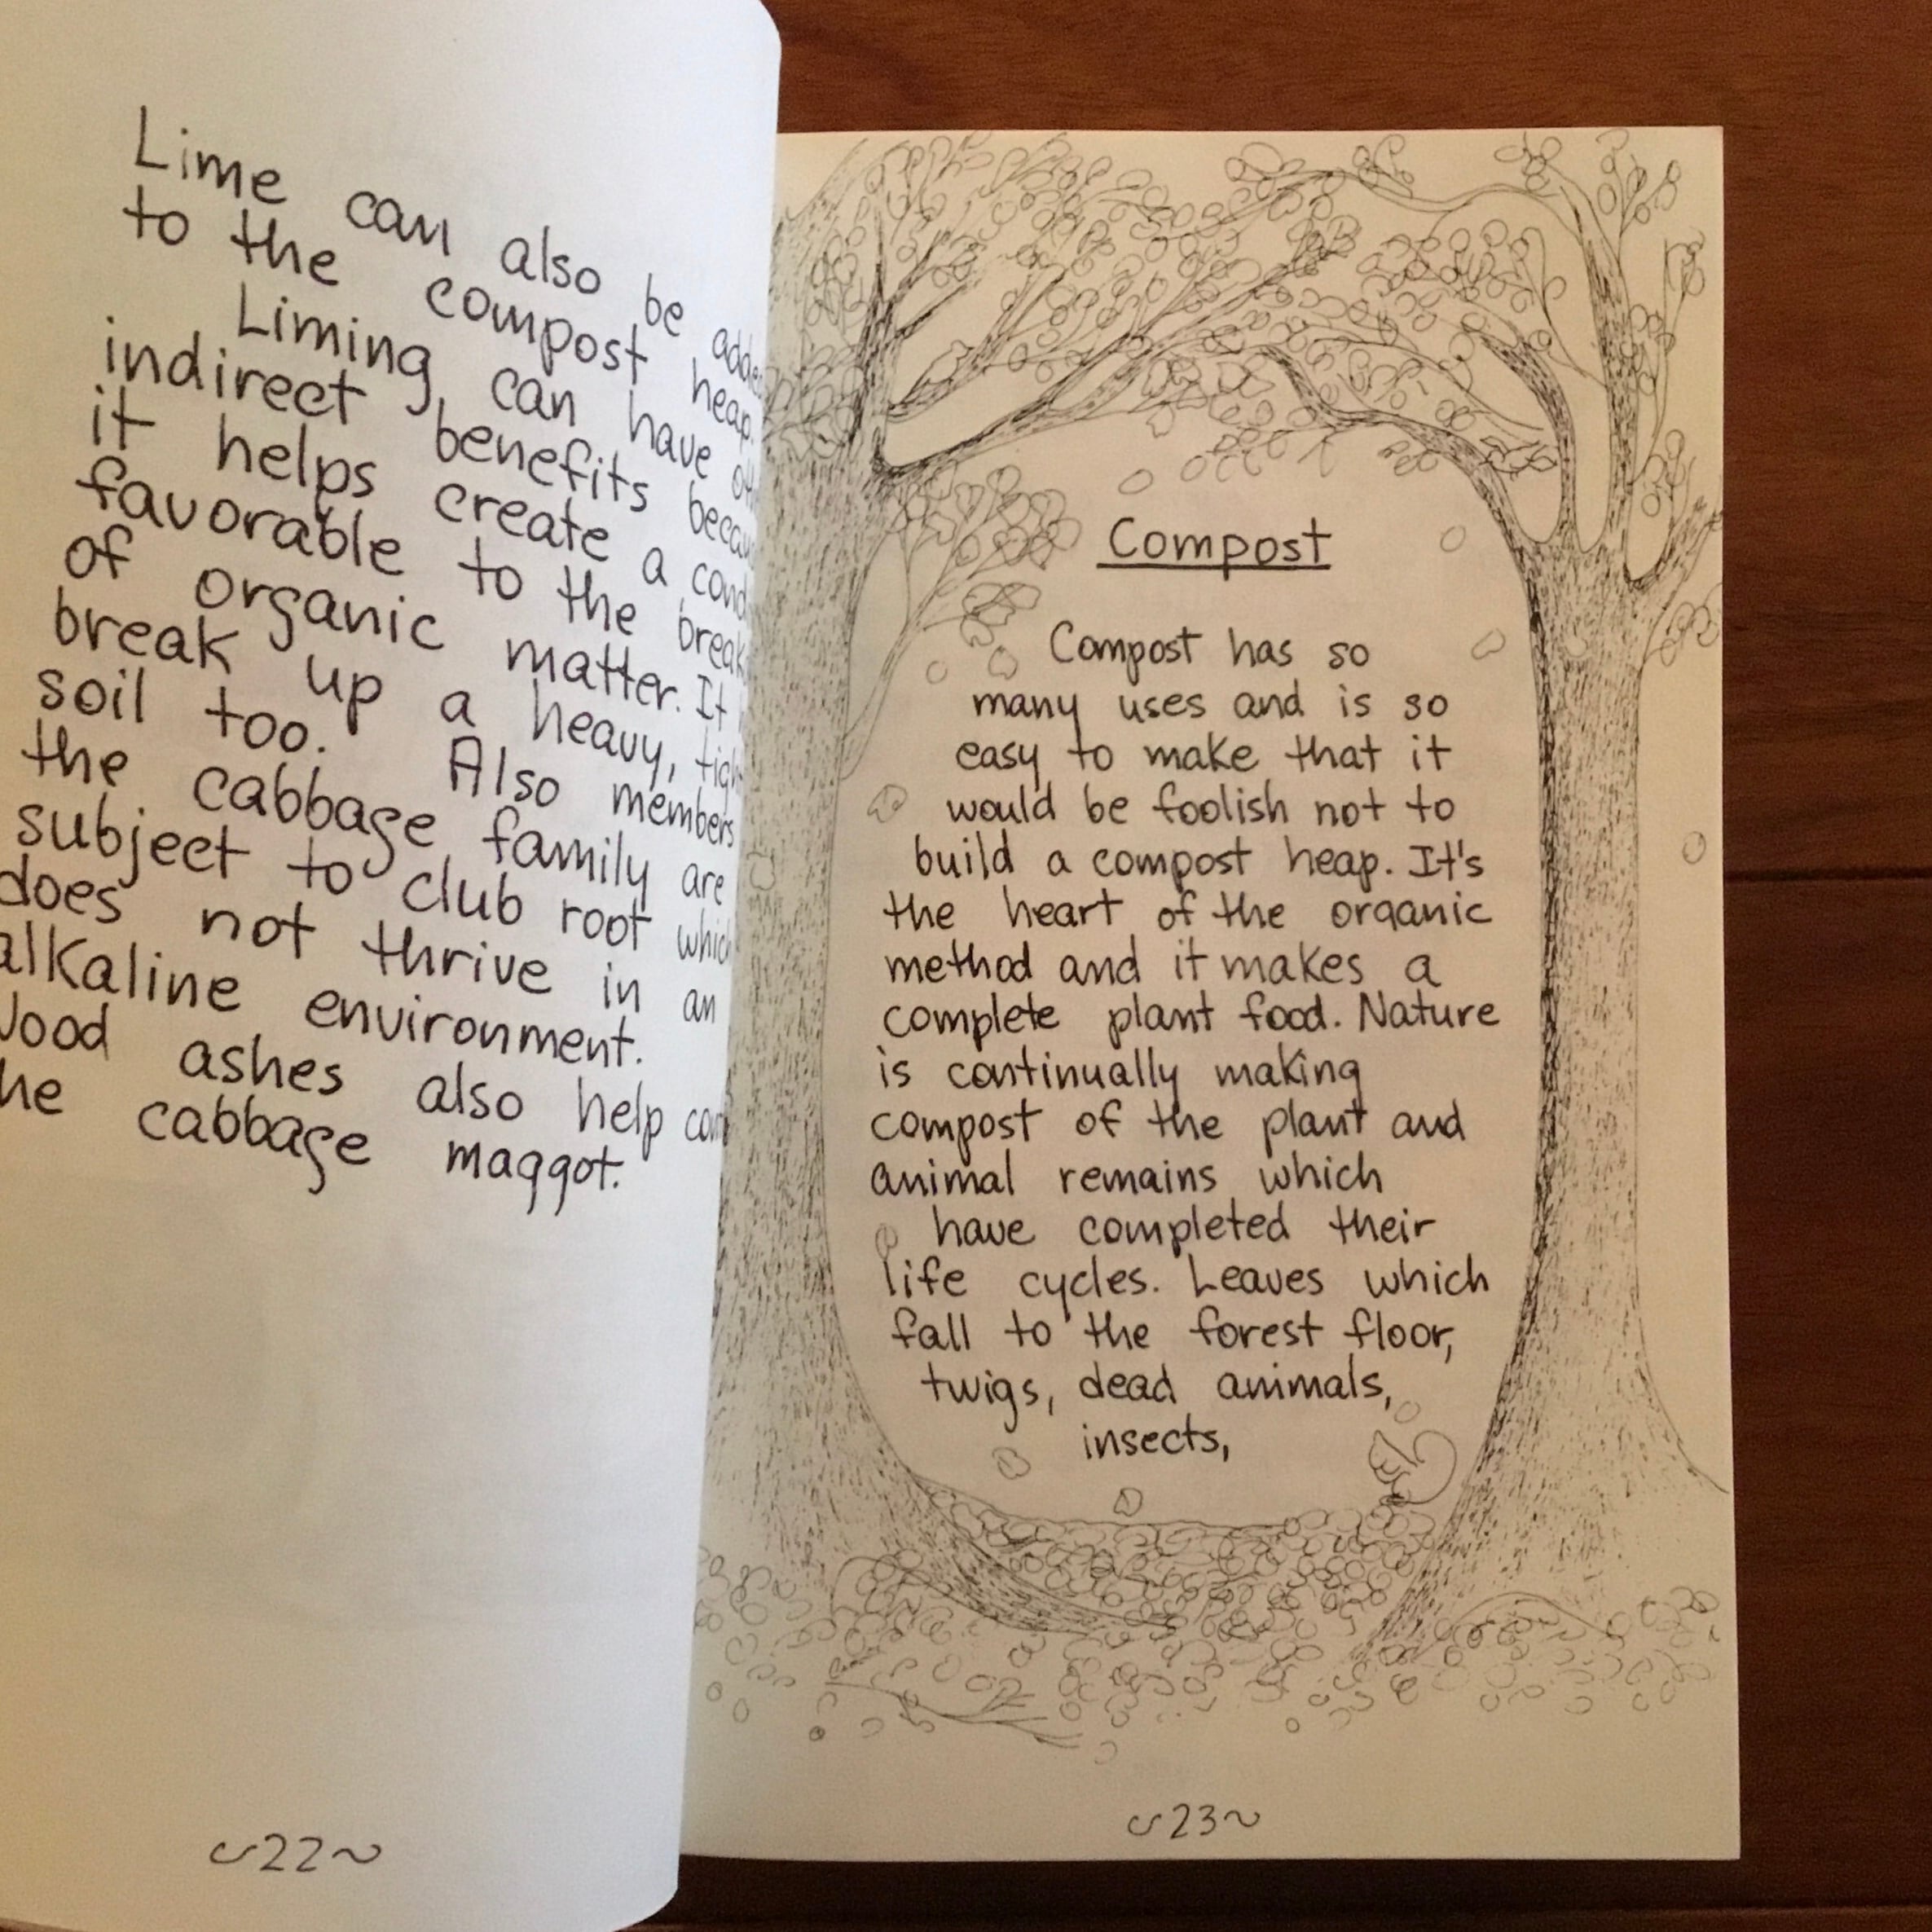 Lime can also be
to the compost heap.
Liming can have
indirect benefits
it helps create a
favorable to the
of organic matter. It
break up a heavy,
soil too. Also members
the cabbage family are
subject to club root
does not thrive in an
alkaline environment.
ashes also help
cabbage maggot.
~22~
Compost
Compost has so
many uses and is so
easy to make that it
would be foolish not to
build a compost heap. It's
the heart of the organic
method and it makes a
complete plant food. Nature
is continually making
compost of the plant and
animal remains which
have completed their
life cycles. Leaves which
fall to the forest floor,
twigs, dead animals,
insects,
~23~